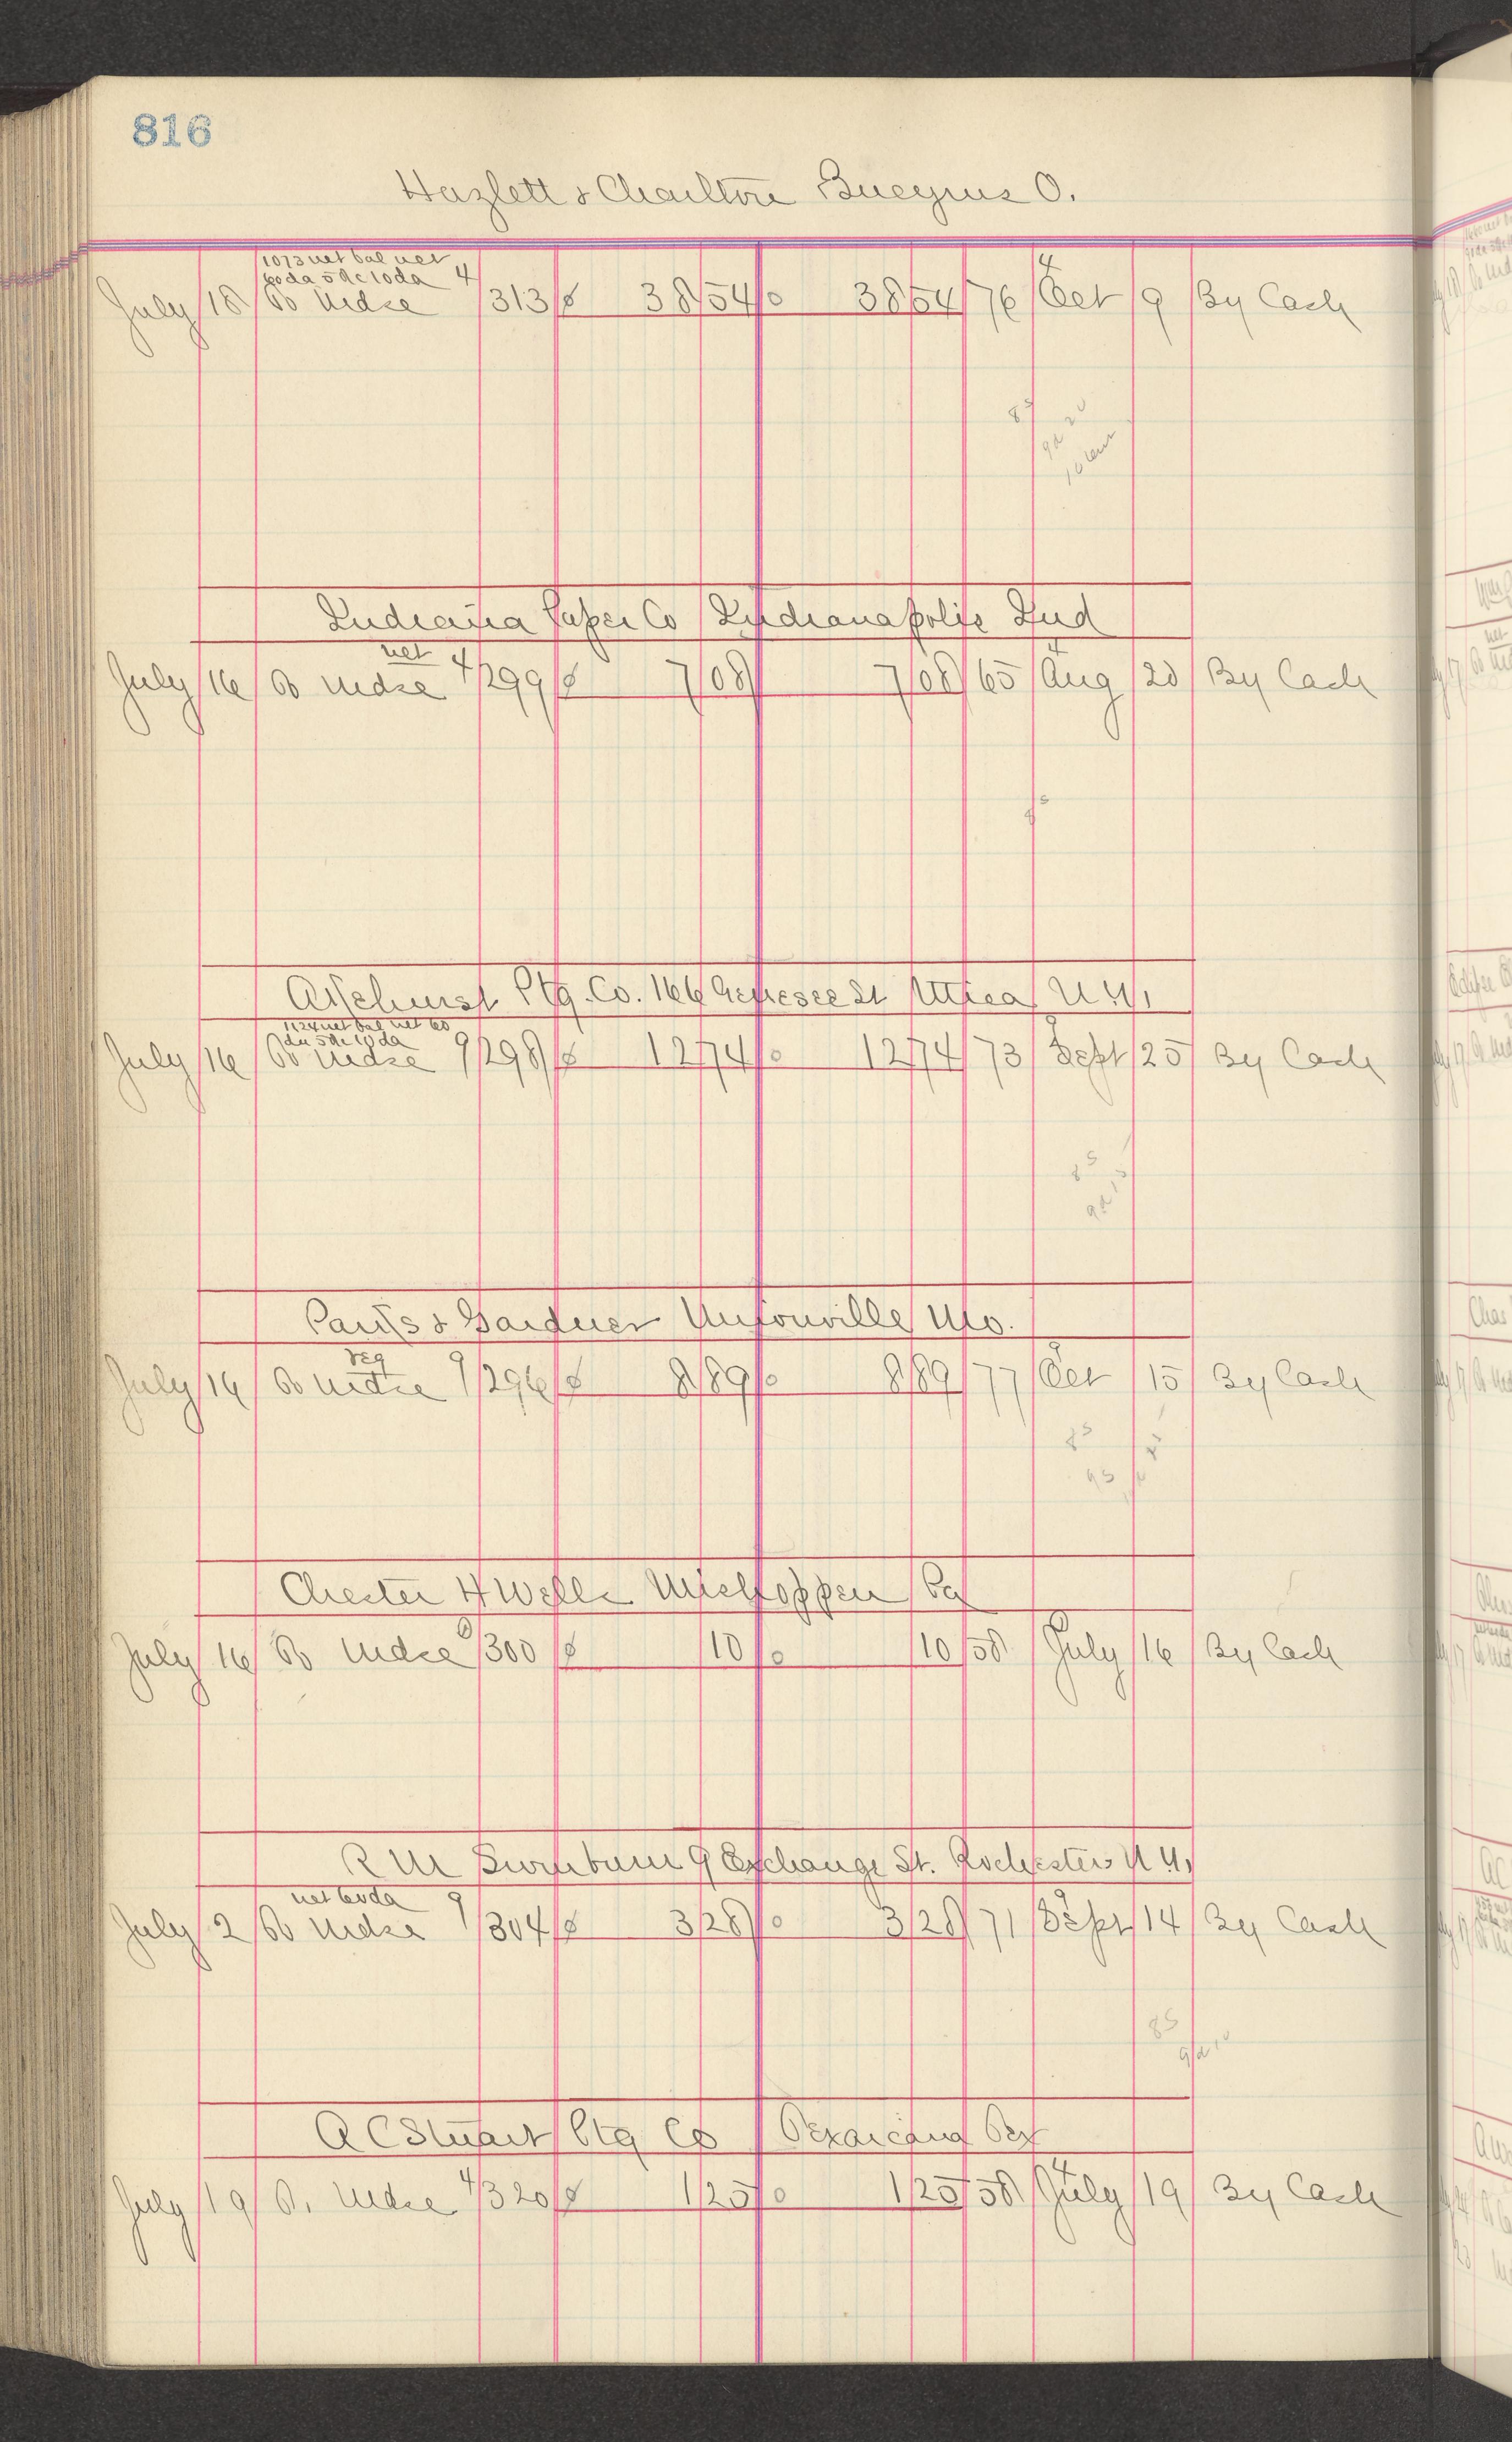 816
Hazlett & Charlton Bucyrus O.
1073 net bal net
60 da 5 % 10 da 4
July 18 To Mdse 313 38 54 38 54 76 Oct 9 By Cash
Indiana Paper Co Indianapolis Ind
net 4 4
July 16 To Mdse 299 7 08 7 08 65 Aug 20 By Cash
Ashehurst Ptg. Co. 166 Genesee St Utica N.Y.
1124 net bal net 60
da 5 % 10 da 9
July 16 To Mdse 298 12 74 12 74 73 Sept 25 By Cash
& Gardner Unionville Mo.
reg 9 9
July 16 To Mdse 296 8 89 8 89 77 Oct 15 By Cash
Chester H Wells Meshoppen Pa
July 16 To Mdse 300 10 10 58 July 16 By Cash
R M Swinburn 9 Exchange St. Rochester N.Y.
net 60 da 9 9
July 2 To Mdse 304 3 28 3 28 71 Sept 14 By Cash
85
A C Stuart Ptg Co Texarcana Tex
July 19 To Mdse 4 320 1 25 1 25 58 July 19 By Cash